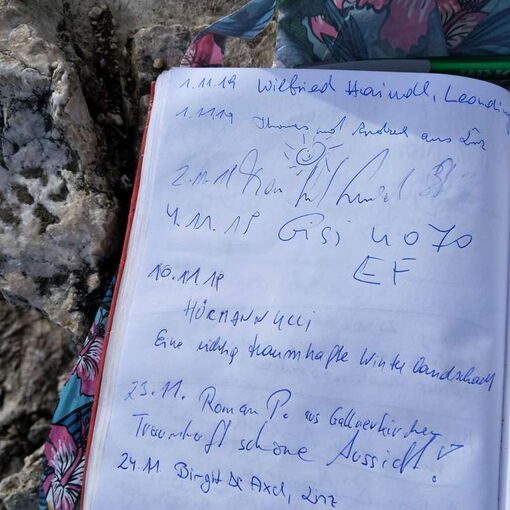 1.11.19 Wilfried Haindl, Leonding
1.11.19 Thomas und aus Linz
2.11.19
4.11.19 Gisi 4070
EF
10.11.19
HÖRMANN ULLI
Eine richtig traumhafte Winterlandschaft
23.11. Roman P. aus Gallneukirchen
Traumhaft schöne Aussicht!
24.11 Birgit & Axel, Linz